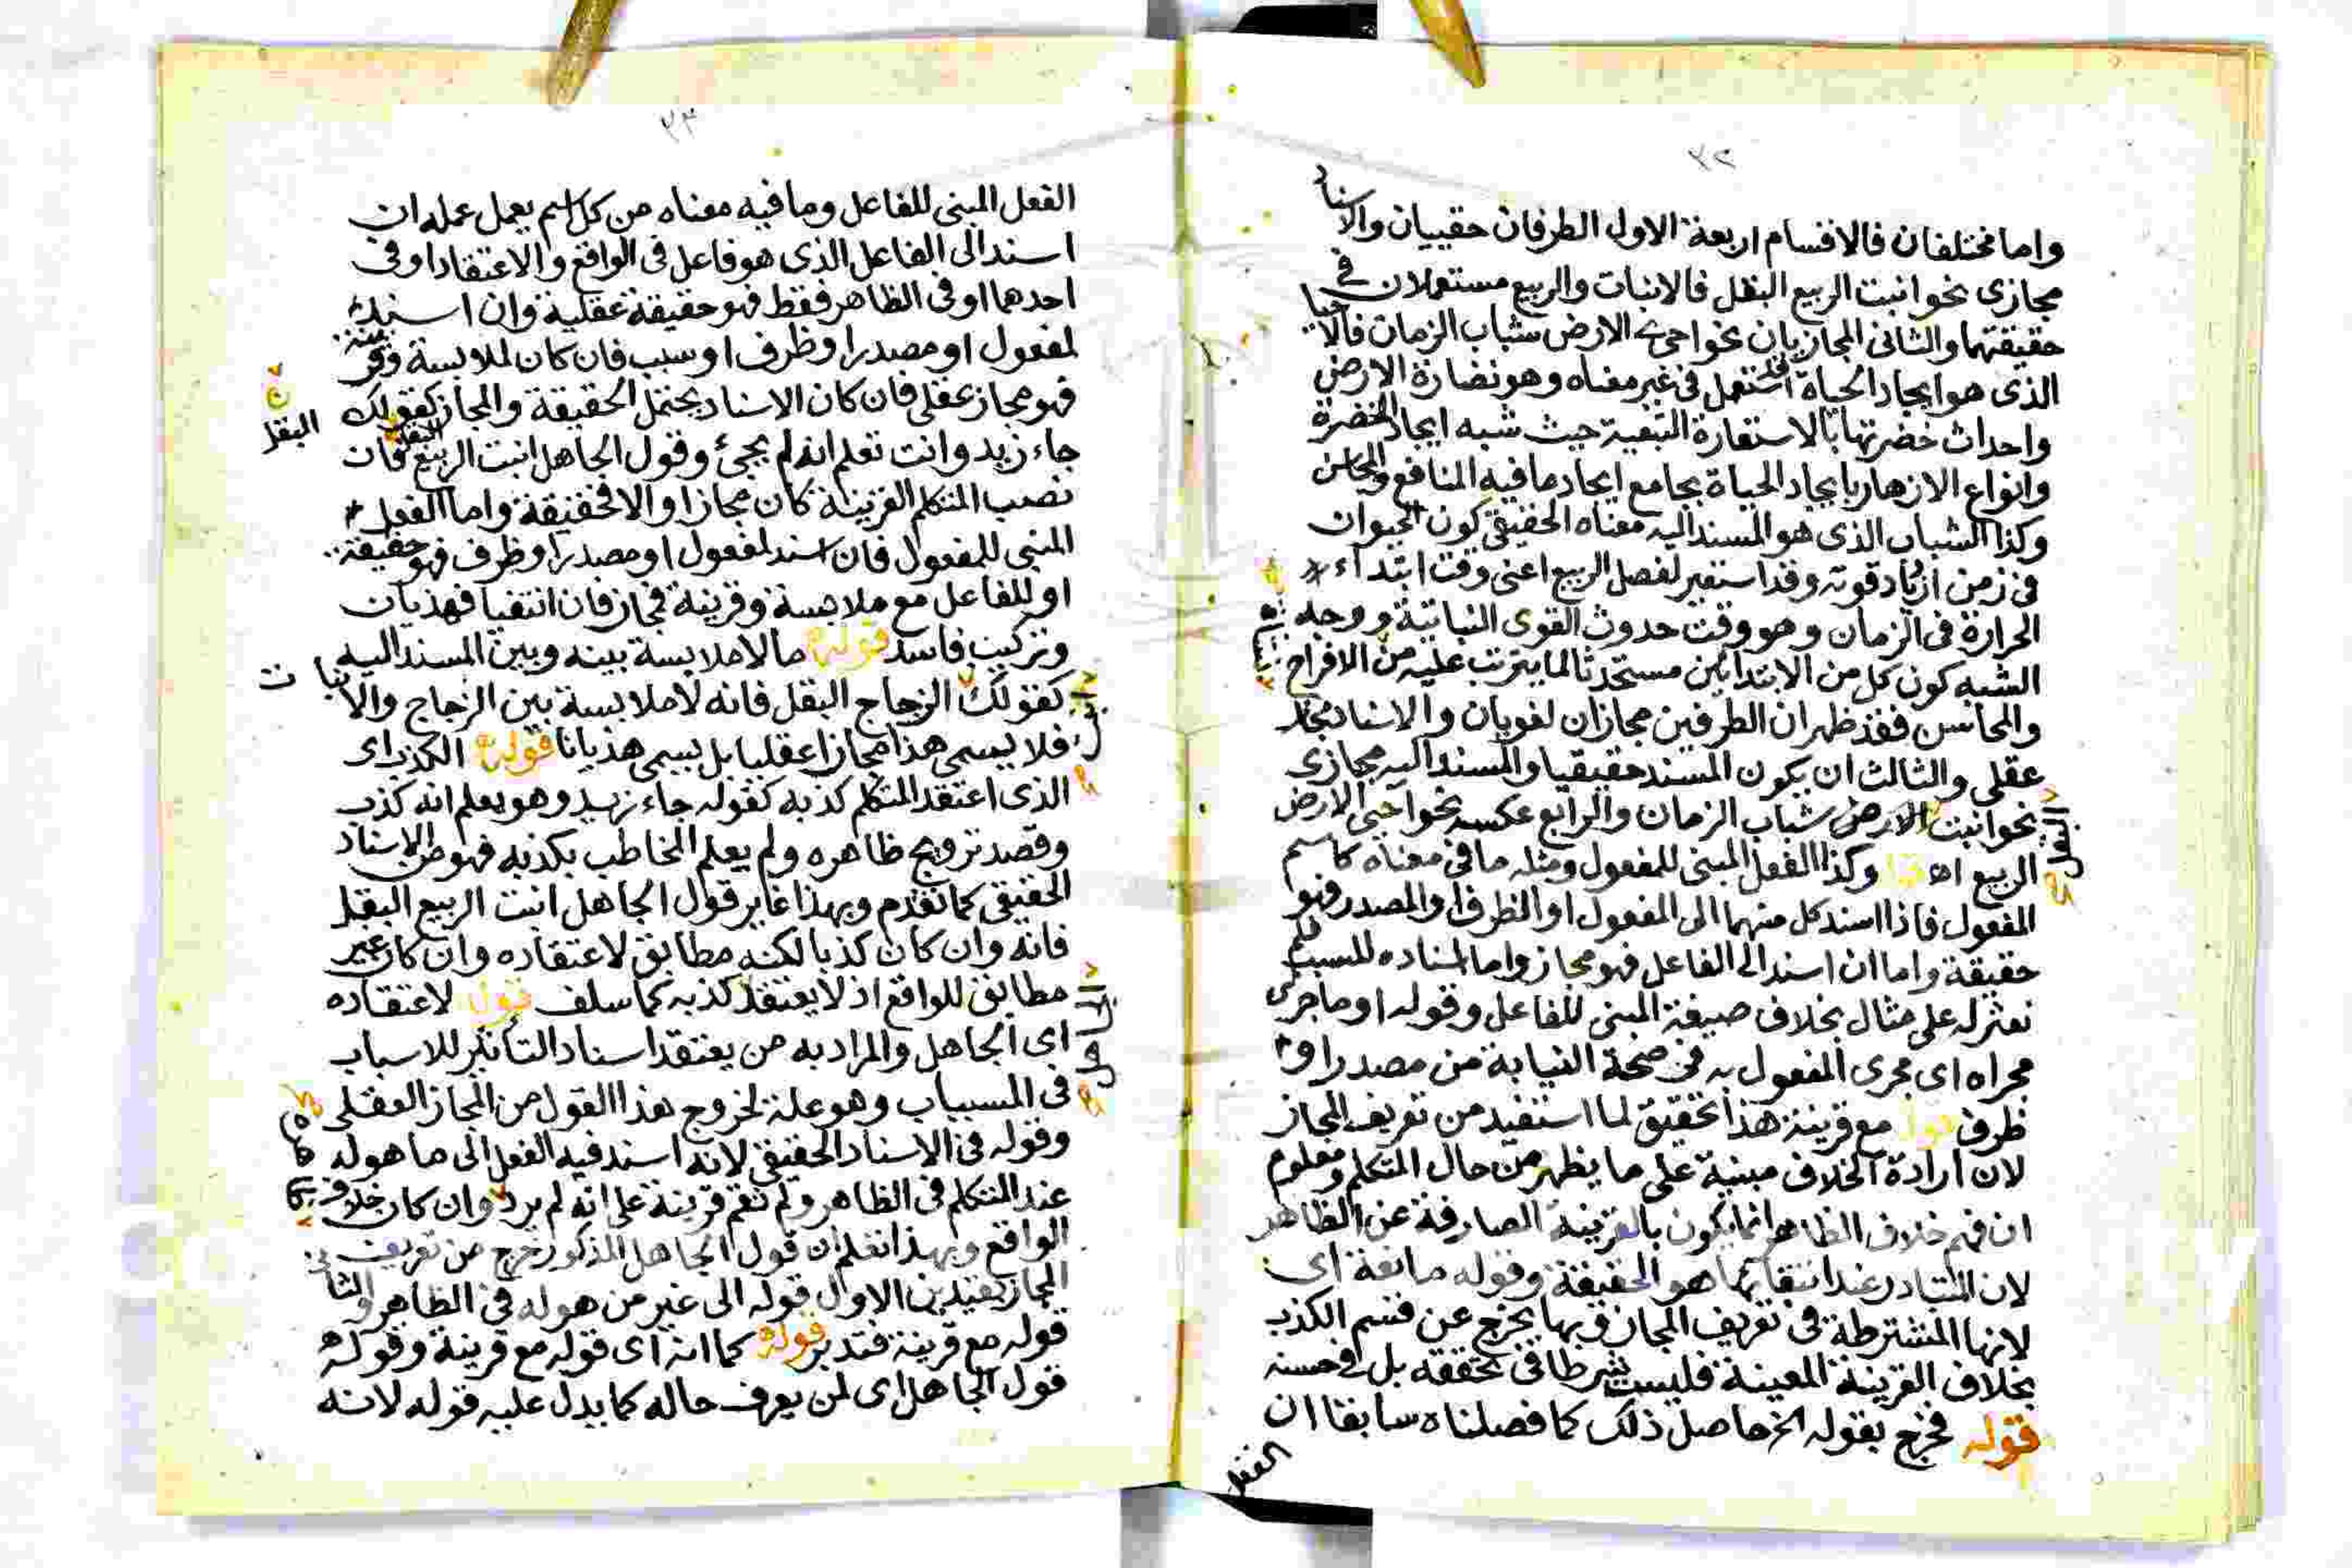 ٣٢
واما مختلفان فالاقسام اربعة الاول الطرفان حقيقيان والاسناد
مجازى نحو انبت الربيع البقل فالانبات والربيع مستعملان في
حقيقتهما والثانى المجازيان نحو احيى الارض شباب الزمان فالاحيا
الذى هو ايجاد الحياة استعمل فى غير معناه وهو نضارة الارض
واحداث خضرتها بالاستعارة التبعية حيث شبه ايجاد الخضرة
وانواع الازهار بايجاد الحياة بجامع ايجاد ما فيه المنافع والمحاسن
وكذا الشباب الذى هو المسند اليه معناه الحقيقى كون الحيوان
فى زمن ازدياد قوته وقد استعير لفصل الربيع اعنى وقت ابتداء
الحرارة فى الزمان وهو وقت حدوث القوى النباتية ووجه
الشبه كون كل من الابتدائين مستحدثا لما يترتب عليه من الافراح
والمحاسن فقد ظهر ان الطرفين مجازان لغويان والاسناد مجاز
عقلى والثالث ان يكون المسند حقيقيا والمسند اليه مجازى
نحو انبت البقل شباب الزمان والرابع عكسه نحو احيى الارض
الربيع اه وكذا الفعل المبنى للمفعول ومثله ما فى معناه كاسم
المفعول فاذا اسند كل منهما الى المفعول او الظرف او المصدر فهو
حقيقة واما ان اسند الى الفاعل فهو مجاز واما اسناده للسبب فلم
نعثر له على مثال بخلاف صيغة المبنى للفاعل وقوله او ما جرى
مجراه اى مجرى المفعول به فى صحة النيابة من مصدر او
ظرف قوله مع قرينة هذا تحقيق لما استفيد من تعريف المجاز
لان ارادة الخلاف مبنية على ما يظهر من حال المتكلم ومعلوم
ان فهم خلاف الظاهر انما يكون بالقرينة الصارفة عن الظاهر
لان المتبادر عند انتفائها هو الحقيقة وقوله مانعة اى
لانها المشترطة فى تعريف المجاز وبها يخرج عن قسم الكذب
بخلاف القرينة المعينة فليست شرطا فى تحققه بل فى حسنه
قوله فخرج بقوله الخ حاصل ذلك كما فصلناه سابقا ان
الفعل
٣٣
الفعل المبنى للفاعل وما فيه معناه من كل اسم يعمل عمله ان
اسند الى الفاعل الذى هو فاعل فى الواقع والاعتقاد او فى
احدهما او فى الظاهر فقط فهو حقيقة عقلية وان اسند
لمفعول او مصدر او ظرف او سبب فان كان لملابسة وقرينة
فهو مجاز عقلى فان كان الاسناد يحتمل الحقيقة والمجاز كقولك
جاء زيد وانت تعلم انه لم يجئ وقول الجاهل انبت الربيع البقل فان
نصب المتكلم القرينة كان مجازا والا فحقيقة واما الفعل
المبنى للمفعول فان اسند لمفعول او مصدر او ظرف فهو حقيقة
او للفاعل مع ملابسة وقرينة فمجاز فان انتفيا فهذيان
وتركيب فاسد قوله ما لا ملابسة بينه وبين المسند اليه
كقولك الزجاج البقل فانه لا ملابسة بين الزجاج والانبات
فلا يسمى هذا مجازا عقليا بل يسمى هذيانا قوله الكذب اى
الذى اعتقد المتكلم كذبه كقوله جاء زيد وهو يعلم انه كذب
وقصد ترويج ظاهره ولم يعلم المخاطب بكذبه فهو من الاسناد
الحقيقى كما تقدم وبهذا غاير قول الجاهل انبت الربيع البقل
فانه وان كان كذبا لكنه مطابق لاعتقاده وان كان غير
مطابق للواقع اذ لا يعتقد كذبه كما سلف قوله لاعتقاده
اى الجاهل والمراد به من يعتقد اسناد التأثير للاسباب
فى المسببات وهو علة لخروج هذا القول من المجاز العقلى
وقوله فى الاسناد الحقيقى لانه اسند فيه الفعل الى ما هو له
عند المتكلم فى الظاهر ولم تقم قرينة على انه لم يرد وان كان خلاف
الواقع وبهذا تعلم ان قول الجاهل المذكور خرج من تعريف
المجاز بقيدين الاول قوله الى غير من هو له فى الظاهر والثانى
قوله مع قرينة فتدبر قوله كما انه اى قوله مع قرينة وقوله
قول الجاهل اى لمن يعرف حاله كما يدل عليه قوله لانه